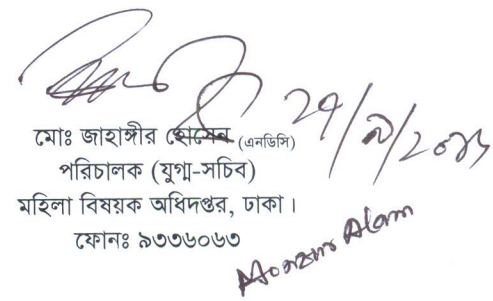 মোঃ জাহাঙ্গীর হোসেন (এনডিসি)
পরিচালক (যুগ্ম-সচিব)
মহিলা বিষয়ক অধিদপ্তর, ঢাকা।
ফোনঃ ৯৩৩৬০৬৩
Monzur Alam